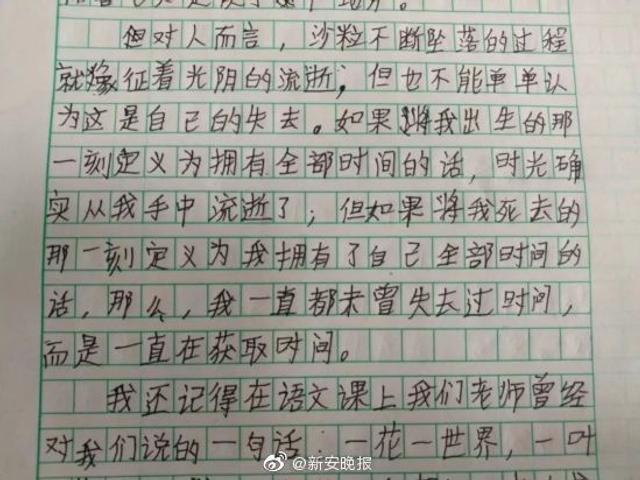 但对人而言，沙粒不断坠落的过程
就像征着光阴的流逝；但也不能单单认
为这是自己的失去。如果将我出生的那
一刻定义为拥有全部时间的话，时光确
实从我手中流逝了；但如果将我死去的
那一刻定义为我拥有了自己全部时间的
话，那么，我一直都未曾失去过时间，
而是一直在获取时间。
我还记得在语文课上我们老师曾经
对我们说的一句话：一花一世界，一叶
@新安晚报